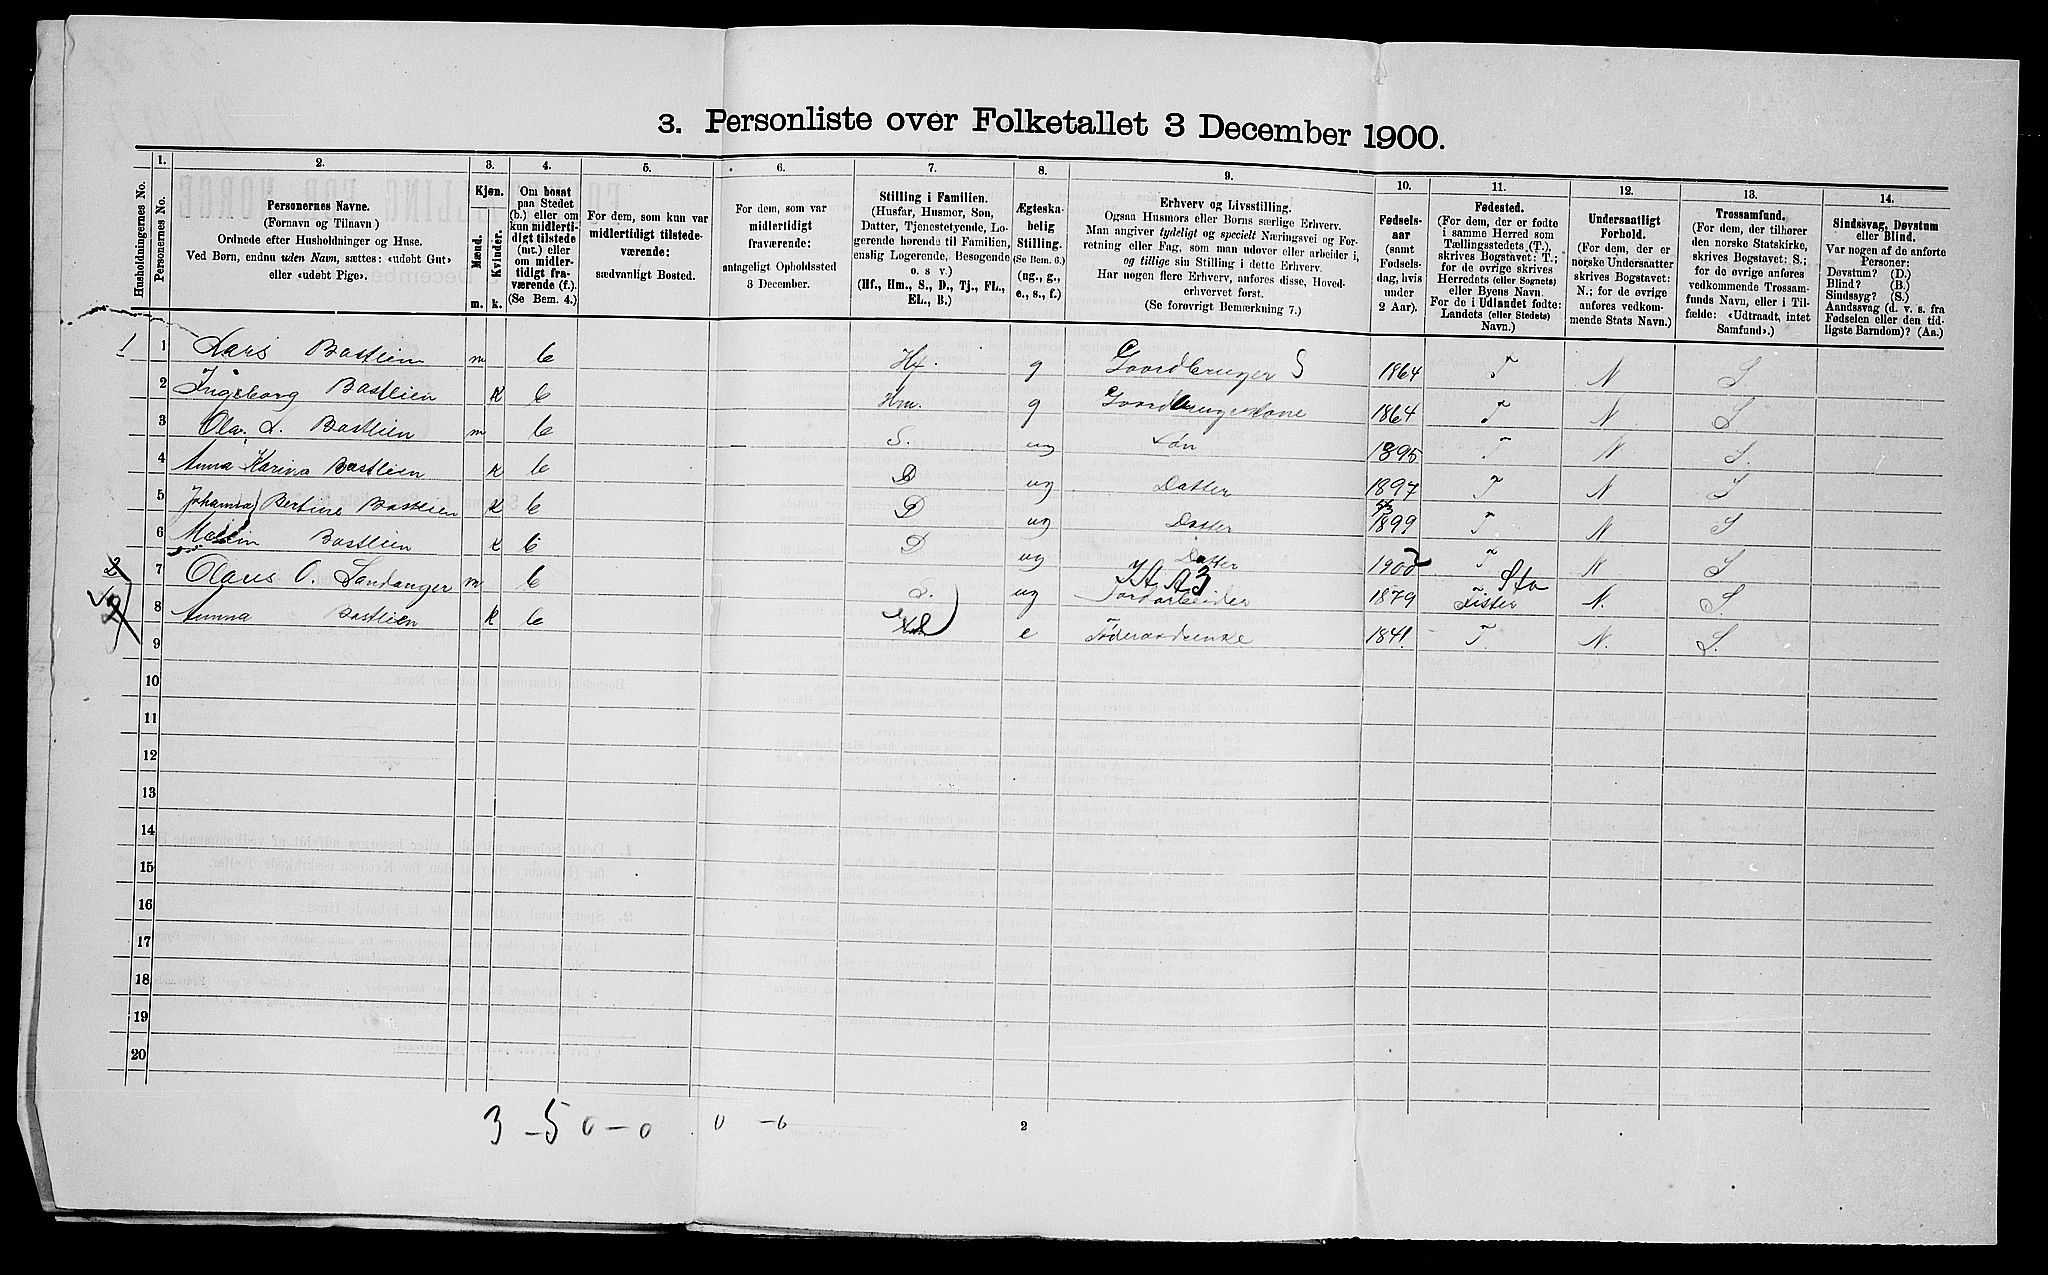 3. Personliste over Folketallet 3 December 1900.
1. 2. 3. 4. 5. 6. 7. 8. 9. 10. 11. 12. 13. 14.
Husholdningernes No.
Personernes No.
Personernes Navne.
(Fornavn og Tilnavn)
Ordnede efter Husholdninger og Huse.
Ved Børn, endnu uden Navn, sættes: «udøbt Gut»
eller «udøbt Pige».
Kjøn.
Mænd.
Kvinder.
m. k.
Om bosat
paa Stedet
(b.) eller om
kun midlerti-
digt tilstede
(mt.) eller
om midler-
tidigt fra-
værende (f.).
(Se Bem. 4.)
For dem, som kun var
midlertidigt tilstede-
værende:
sædvanligt Bosted.
For dem, som var
midlertidigt
fraværende:
antageligt Opholdssted
3 December.
Stilling i Familien.
(Husfar, Husmor, Søn,
Datter, Tjenestetyende, Lo-
gerende hørende til Familien,
enslig Logerende, Besøgende
o. s v.)
(Hf., Hm., S., D., Tj., FL.,
EL., B.)
Ægteska-
belig
Stilling.
(Se Bem. 6.)
(ug., g.,
e., s., f.)
Erhverv og Livsstilling.
Ogsaa Husmors eller Børns særlige Erhverv.
Man angiver tydeligt og specielt Næringsvei og For-
retning eller Fag, som man udøver eller arbeider i,
og tillige sin Stilling i dette Erhverv.
Har nogen flere Erhverv, anføres disse, Hoved-
erhvervet først.
(Se forøvrigt Bemærkning 7.)
Fødsels-
aar
(samt
Fødsels-
dag, hvis
under
2 Aar).
Fødested.
(For dem, der er fødte
i samme Herred som
Tællingsstedets (T.),
skrives Bogstavet: T.;
for de øvrige skrives
Herredets (eller Sognets)
eller Byens Navn.
For de i Udlandet fødte:
Landets (eller Stedets)
Navn.)
Undersaatligt
Forhold.
(For dem, der er
norske Undersaatter
skrives Bogstavet:
N.; for de øvrige
anføres vedkom-
mende Stats Navn.)
Trossamfund.
(For dem, der tilhører
den norske Statskirke,
skrives Bogstavet: S.;
for de øvrige anføres
vedkommende Trossam-
funds Navn, eller i Til-
fælde: «Udtraadt, intet
Samfund».)
Sindssvag, Døvstum
eller Blind.
Var nogen af de anførte
Personer:
Døvstum? (D.)
Blind? (B.)
Sindssyg? (S.)
Aandssvag (d. v. s. fra
Fødselen eller den tid-
ligste Barndom)? (Aa.)
1 1 Lars Bastlien m b Hf. g Gaardbruger S 1864 T N S.
2 Ingeborg Bastlien k b Hm. g Gaardbrugerkone 1864 T N. S.
3 Olav L. Bastlien m b S. ug Søn 1895 T N. S.
4 Anna Karina Bastlien k b D ug Datter 1897 T N S
5 Johanna Bertine Bastlien k b D ug Datter 1899 T N. S
6 Bastlien k b D ug Datter 1900 T N. S
7 Olaus O. Sandanger m b ug Jordarbeider 1879 Fister N. S.
8 Bastlien k b e Føderaadsenke 1841. T. N. S.
9
10
11
12
13
14
15
16
17
18
19
20
3 - 5 0 - 0 0 - 0
2